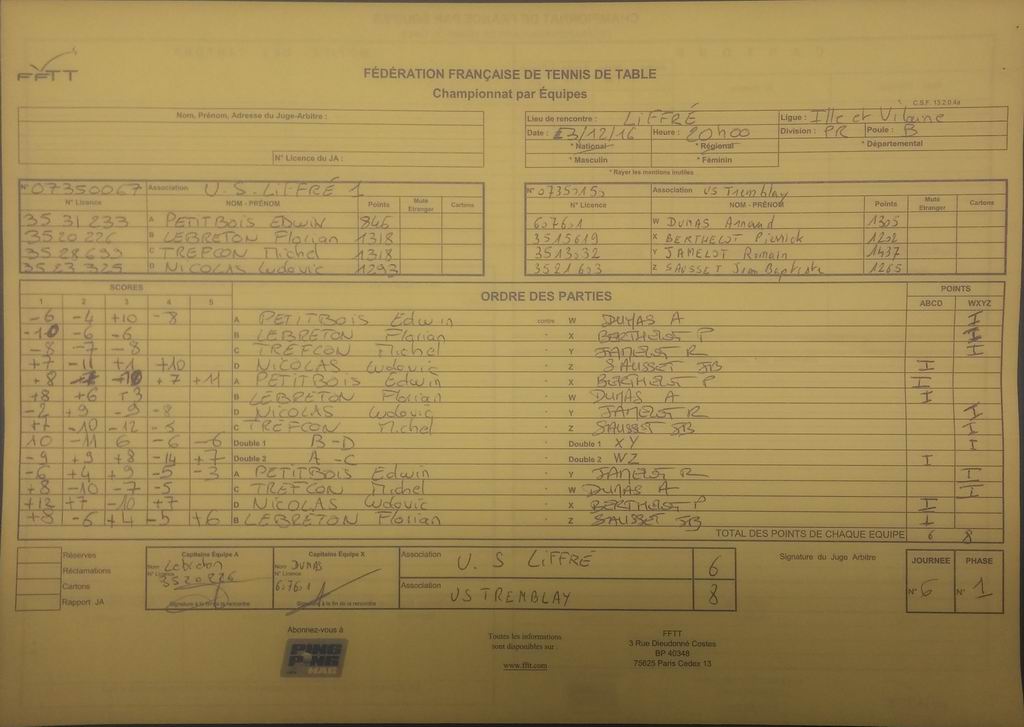 FFTT
FÉDÉRATION FRANÇAISE DE TENNIS DE TABLE
Championnat par Équipes
C.S.F. 13.2.0.4a
Nom, Prénom, Adresse du Juge-Arbitre :
N° Licence du JA :
Lieu de rencontre : LIFFRÉ Ligue : Ille et Vilaine
Date : 23/12/16 Heure : 20h00 Division : PR Poule : B
* National * Régional * Départemental
* Masculin * Féminin
* Rayer les mentions inutiles
N° 07350067 Association U.S. LIFFRÉ 1
N° Licence NOM - PRÉNOM Points Muté Etranger Cartons
35 31 233 A PETITBOIS EDWIN 846
3520226 B LEBRETON Florian 1318
C TREFCON Michel 1318
35 23 325 D NICOLAS Ludovic 1293
Association US Tremblay
N° Licence NOM - PRÉNOM Points Muté Etranger Cartons
607601 W DUMAS Arnaud 1305
3515619 X BERTHELOT Pierrick 1202
3513032 Y JAMELOT Romain 1437
3521603 Z SAUSSET Jean Baptiste 1265
SCORES ORDRE DES PARTIES POINTS
1 2 3 4 5 ABCD WXYZ
-6 -4 +10 -8 A PETITBOIS Edwin contre W DUMAS A I
-10 -6 -6 B LEBRETON Florian X BERTHELOT P I
-8 -7 -8 C TREFCON Michel Y JAMELOT R I
+7 -11 +1 +10 D NICOLAS Ludovic Z SAUSSET JB I
+8 +10 +7 +11 A PETITBOIS Edwin X BERTHELOT P I
+8 +6 +3 B LEBRETON Florian W DUMAS A I
-2 +9 -9 -8 D NICOLAS Ludovic Y JAMELOT R I
+7 -10 -12 -5 C TREFCON Michel Z SAUSSET JB I
10 -11 6 -6 -6 Double 1 B-D Double 1 XY I
-9 +9 +8 -14 +7 Double 2 A-C Double 2 WZ I
-6 +4 +9 -5 -3 A PETITBOIS Edwin Y JAMELOT R I
+8 -10 -7 -5 C TREFCON Michel W DUMAS A I
+12 +7 -10 +7 D NICOLAS Ludovic X BERTHELOT P I
+8 -6 +4 -5 +6 B LEBRETON Florian Z SAUSSET JB I
TOTAL DES POINTS DE CHAQUE EQUIPE 6 8
Réserves
Réclamations
Cartons
Rapport JA
Capitaine Équipe A
Nom Lebreton
N° Licence 3520226
Signature à la fin de la rencontre
Capitaine Équipe X
Nom DUMAS
N° Licence 607601
Signature à la fin de la rencontre
Association U.S LIFFRÉ 6
Association US TREMBLAY 8
Signature du Juge Arbitre
JOURNEE PHASE
N° 6 N° 1
Abonnez-vous à
PING PONG MAG
Toutes les informations
sont disponibles sur :
www.fftt.com
FFTT
3 Rue Dieudonné Costes
BP 40348
75625 Paris Cedex 13